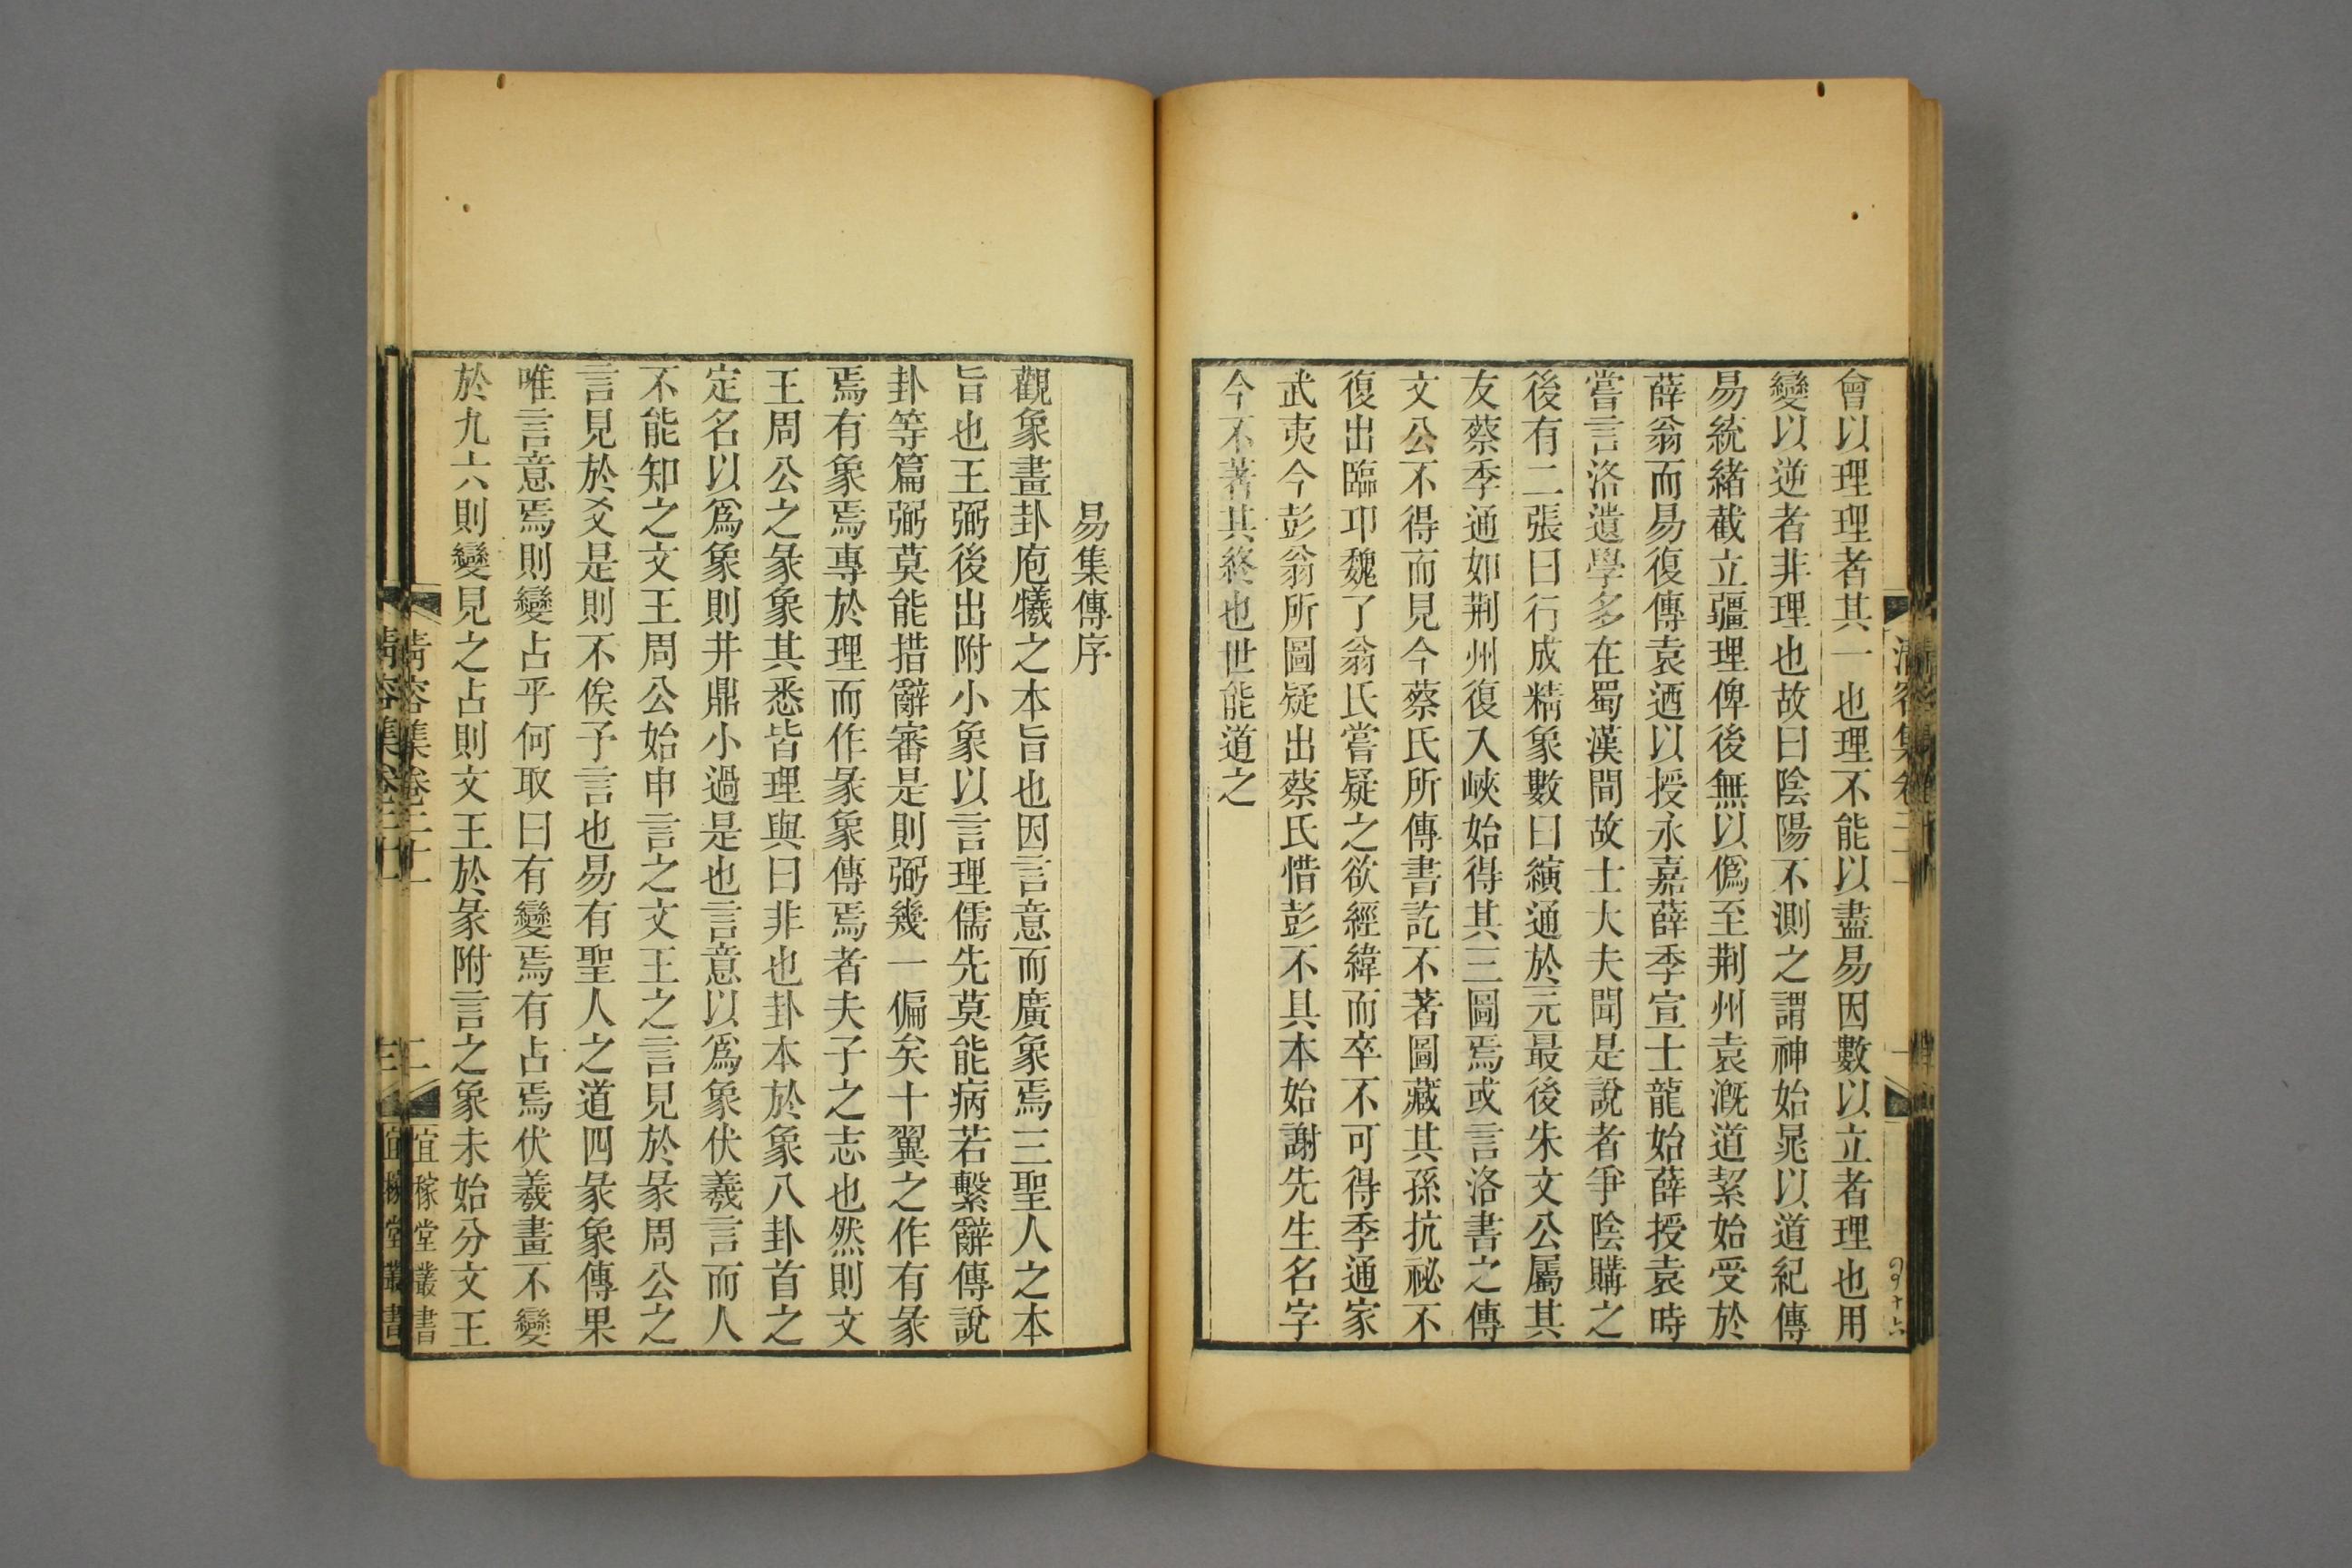 會以理理者其一也理不能以盡易因數以立者理也用
變以逆者非理也故曰陰陽不測之謂神始晁以道紀傳
易統緒截立疆理俾後無以僞至荆州袁漑道絜始受於
薛翁而易復傳袁迺以授永嘉薛季宣士龍始薛授袁時
嘗言洛遺學多在蜀漢間故士大夫聞是說者爭陰購之
後有二張曰行成精象數曰縯通於元最後朱文公屬其
友蔡季通如荆州復入峽始得其三圖焉或言洛書之傳
文公不得而見今蔡氏所傳書訖不著圖藏其孫抗祕不
復出臨卭魏了翁氏嘗疑之欲經緯而卒不可得季通家
武夷今彭翁所圖疑出蔡氏惜彭不具本始謝先生名字
今不著其終也世能道之
易集傳序
觀象畫卦庖犧之本旨也因言意而廣象焉三聖人之本
旨也王弼後出附小象以言理儒先莫能病若繫辭傳說
卦等篇弼莫能措辭審是則弼幾一偏矣十翼之作有彖
焉有象焉專於理而作彖象傳焉者夫子之志也然則文
王周公之彖象其悉皆理與曰非也卦本於象八卦首之
定名以爲象則井鼎小過是也言意以爲象伏羲言而人
不能知之文王周公始申言之文王之言見於彖周公之
言見於爻是則不俟子言也易有聖人之道四彖象傳果
唯言意焉則變占乎何取曰有變焉有占焉伏羲畫不變
於九六則變見之占則文王於彖附言之象未始分文王
清容集卷二十一
二
宜稼堂叢書